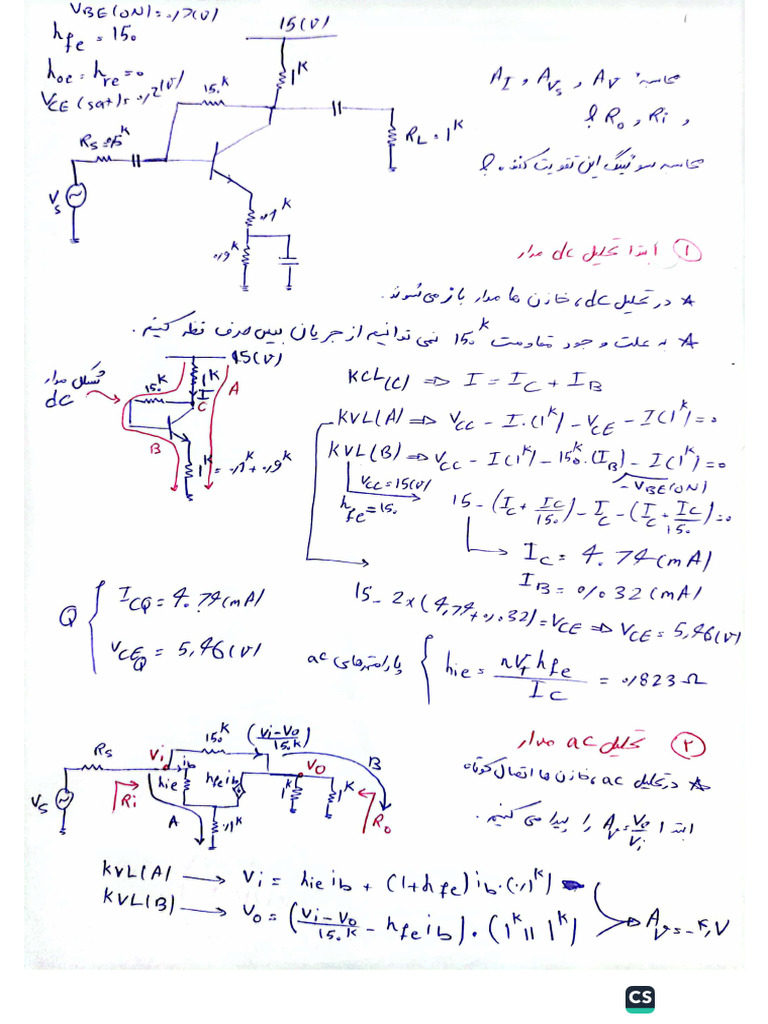 V_BE(ON)=0,7(V)
h_fe = 150
h_oe = h_re = 0
V_CE(sat) = 0,2(V)
15(V)
1^K
150^K
R_S = 0.5^K
R_L = 1^K
V_S
0,1^K
0,9^K
1
محاسبه: A_I و A_Vs و A_V
و R_i و R_o ؟
محاسبه سوئینگ این تقویت کننده؟
① ابتدا تحلیل dc مدار
★ در تحلیل dc، خازن ها مدار باز می شوند.
★ به علت وجود مقاومت 150^K نمی توانیم از جریان بیس صرف نظر کنیم.
شکل مدار
dc
15(V)
150^K
1^K
I
C
A
B
1^K = 0,1^K + 0,9^K
KCL(C) ⇒ I = I_C + I_B
KVL(A) ⇒ V_CC - I.(1^K) - V_CE - I(1^K) = 0
KVL(B) ⇒ V_CC - I(1^K) - 150^K.(I_B) - I(1^K) = 0
- V_BE(ON)
V_CC = 15(V)
h_fe = 150
15 - (I_C + I_C/150) - I_C - (I_C + I_C/150) = 0
I_C = 4.74(mA)
I_B = 0/032(mA)
15 - 2×(4,74+0,032) = V_CE ⇒ V_CE = 5,46(V)
Q { I_CQ = 4.74(mA)
V_CEQ = 5,46(V)
پارامترهای ac { h_ie = nV_T h_fe / I_C = 0/823 Ω
② تحلیل ac مدار
★ در تحلیل ac، خازن ها اتصال کوتاه
ابتدا A_V = V_o/V_i را پیدا می کنیم.
R_S
V_S
R_i
V_i
i_b
h_ie
h_fe i_b
150^K
(V_i-V_o / 150K)
V_o
B
1^K
1^K
R_o
A
0,1^K
KVL(A) → V_i = h_ie i_b + (1+h_fe) i_b.(0,1^K)
KVL(B) → V_o = (V_i-V_o / 150K - h_fe i_b).(1^K || 1^K)
⇒ A_V = -۴,۷
CS